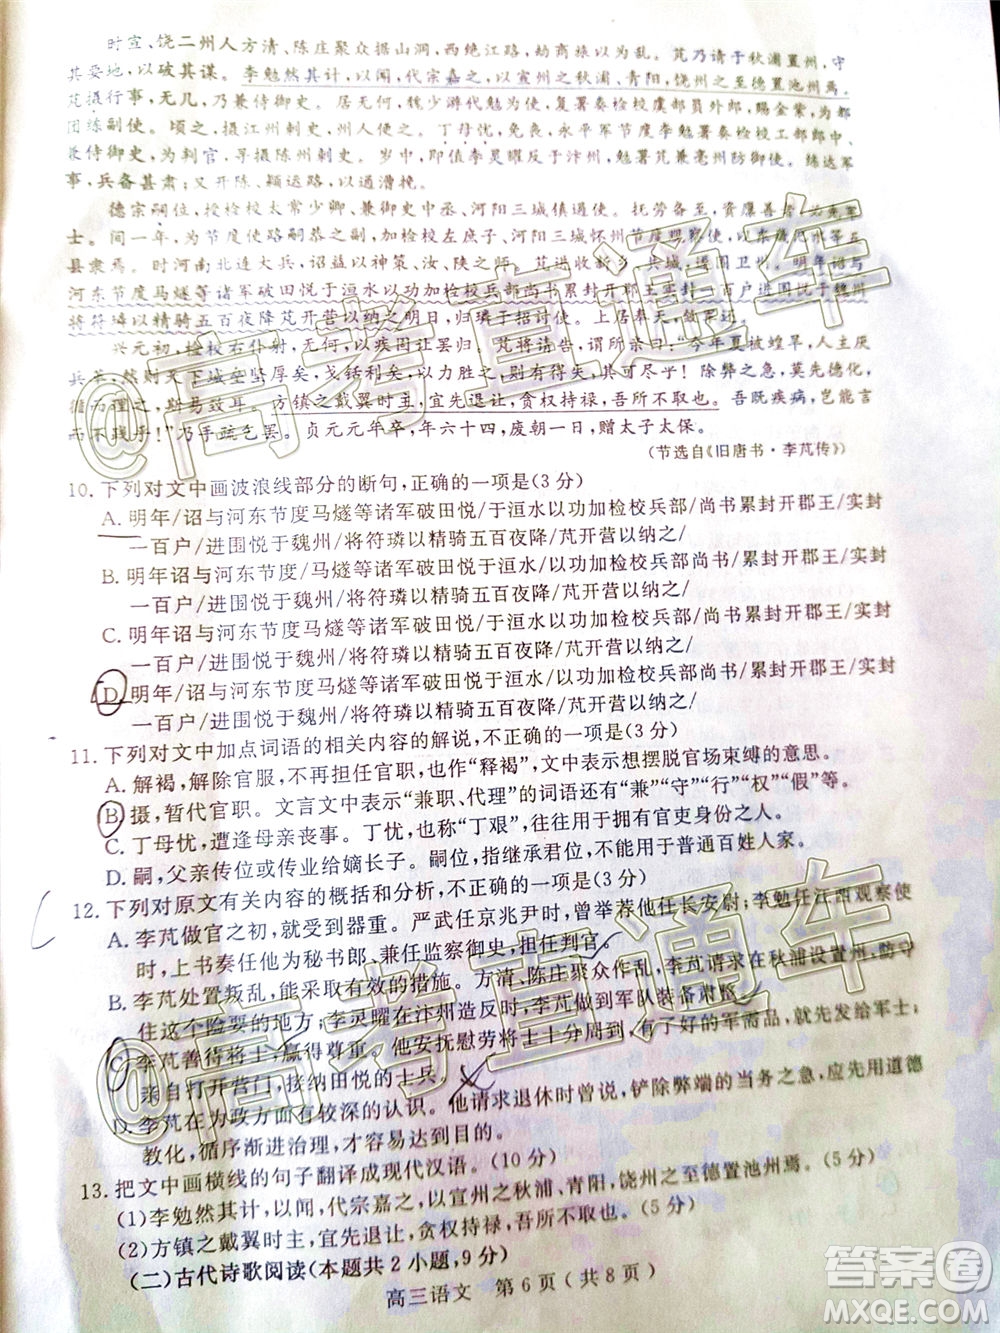 时宣、饶二州人方清、陈庄聚众据山洞,西绝江路,劫商旅以为乱。芃乃请于秋浦置州,守
其要地,以破其谋。李勉然其计,以闻,代宗嘉之,以宣州之秋浦、青阳,饶州之至德置池州焉。
芃摄行事,无几,乃兼侍御史。居无何,魏少游代勉为使,复署奏检校虞部员外郎,赐金紫,为都
团练副使。顷之,摄江州刺史,州人便之。丁母忧,免丧,永平军节度李勉署奏检校工部郎中,
兼侍御史,为判官,寻摄陈州刺史。岁中,即值李灵曜反于汴州,勉署芃兼亳州防御使。练达军
事,兵备甚肃;又开陈、颍运路,以通漕挽。
德宗嗣位,授检校太常少卿、兼御史中丞、河阳三城镇遏使。抚劳备至,资廪善者,必先军
士。间一年,为节度使路嗣恭之副,加检校左庶子、河阳三城怀州节度观察使,
县隶焉。时河南北连大兵,诏益以神策、汝、陕之师。芃进收新乡、共城,遂围卫州。明年诏与
河东节度马燧等诸军破田悦于洹水以功加检校兵部尚书累封开郡王实封一百户进围悦于魏州
将符璘以精骑五百夜降芃开营以纳之明日,归璘于招讨使。上居奉天,敛军还。
兴元初,检校右仆射,无何,以疾固让罢归。芃将请告,谓所亲曰:“今年夏被蝗旱,人主厌
兵革,然则天下城垒坚厚矣,戈铤利矣,以力胜之,则有得失,其可尽乎!除弊之急,莫先德化,
循而理之,斯易致耳。方镇之戴翼时主,宜先退让,贪权持禄,吾所不取也。吾既疾病,岂能言
而不践乎!”乃手疏乞罢。贞元元年卒,年六十四,废朝一日,赠太子太保。
(节选自《旧唐书·李芃传》)
10. 下列对文中画波浪线部分的断句,正确的一项是(3分)
A. 明年/诏与河东节度马燧等诸军破田悦/于洹水以功加检校兵部/尚书累封开郡王/实封
一百户/进围悦于魏州/将符璘以精骑五百夜降/芃开营以纳之/
B. 明年诏与河东节度/马燧等诸军破田悦/于洹水/以功加检校兵部/尚书累封开郡王/实封
一百户/进围悦于魏州/将符璘以精骑五百夜降/芃开营以纳之/
C. 明年诏与河东节度马燧等诸军破田悦/于洹水以功加检校兵部/尚书累封开郡王/实封
一百户/进围悦于魏州/将符璘以精骑五百夜降/芃开营以纳之/
D. 明年/诏与河东节度马燧等诸军破田悦于洹水/以功加检校兵部尚书/累封开郡王/实封
一百户/进围悦于魏州/将符璘以精骑五百夜降/芃开营以纳之/
11. 下列对文中加点词语的相关内容的解说,不正确的一项是(3分)
A. 解褐,解除官服,不再担任官职,也作“释褐”,有时表示想摆脱官场束缚的意思。
B. 摄,暂代官职。文言文中表示“兼职、代理”的词语还有“兼”“守”“行”“权”“假”等。
C. 丁母忧,遭逢母亲丧事。丁忧,也称“丁艰”,往往用于拥有官吏身份之人。
D. 嗣,父亲传位给嫡长子。嗣位,指继承君位,不能用于普通百姓人家。
12. 下列对原文有关内容的概括和分析,不正确的一项是(3分)
A. 李芃做官之初,就受到器重。严武任京兆尹时,曾举荐他任长安尉;李勉任江西观察使
时,上书奏任他为秘书郎、兼任监察御史,担任判官。
B. 李芃处置叛乱,能采取有效的措施。方清、陈庄聚众作乱,李芃请求在秋浦设置州,守
住这个险要的地方;李灵曜在汴州叛乱时,李芃做到军队装备肃整。
C. 李芃善待将士,赢得尊重。他安抚慰劳将士十分周到,有了好的军需品,就先发给军士;
亲自打开营门,接纳田悦的士兵
D. 李芃在为政方面有较深的认识。他请求退休时曾说,铲除弊端的当务之急,应先用道德
教化,循序渐进治理,才容易达到目的。
13. 把文中画横线的句子翻译成现代汉语。(10分)
(1)李勉然其计,以闻,代宗嘉之,以宣州之秋浦、青阳,饶州之至德置池州焉。(5分)
(2)方镇之戴翼时主,宜先退让,贪权持禄,吾所不取也。(5分)
(二)古代诗歌阅读(本题共2小题,9分)
高三语文 第6页(共8页)
@高考直通车
@高考直通车
答案圈
MXQE.COM